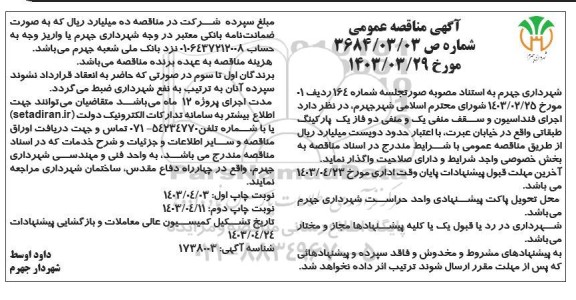 آگهی مناقصه عمومی
شماره ص ۳۶۸۴/۰۳/۰۳
مورخ ۱۴۰۳/۰۳/۲۹
شهرداری جهرم به استناد مصوبه صورتجلسه شماره ۱۶۴ ردیف ۰۱
مورخ ۱۴۰۳/۰۲/۲۵ شورای محترم اسلامی شهرجهرم، در نظر دارد
اجرای فنداسیون و سـقف منفی یک و منفی دو فاز یک پارکینگ
طبقاتی واقع در خیابان عبرت، با اعتبار حدود دویست میلیارد ریال
از طریق مناقصه عمومی با شـرایط مندرج در اسناد مناقصه به
بخش خصوصی واجد شرایط و دارای صلاحیت واگذار نماید.
آخرین مهلت قبول پیشنهادات پایان وقت اداری مورخ ۱۴۰۳/۰۴/۲۳
می باشد.
محل تحویل پاکت پیشـنهادی واحد حراسـت شهرداری جهرم
می‌باشد.
شـهرداری در رد یا قبول یک یا کلیه پیشـنهادها مجاز و مختار
می‌باشد.
به پیشنهادهای مشروط و مخدوش و فاقد سپرده و پیشنهادهائی
که پس از مهلت مقرر ارسال شوند ترتیب اثر داده نخواهد شد.
مبلغ سپرده شـرکت در مناقصه ده میلیارد ریال که به صورت
ضمانت‌نامه بانکی معتبر در وجه شهرداری جهرم یا واریز وجه به
حساب ۰۱۰۶۴۳۷۲۱۲۰۰۸ نزد بانک ملی شعبه جهرم می‌باشد.
هزینه مناقصه به عهده برنده مناقصه می‌باشد.
برندگان اول تا سوم در صورتی که حاضر به انعقاد قرارداد نشوند
سپرده آنان به ترتیب به نفع شهرداری ضبط می‌گردد.
مدت اجرای پروژه ۱۲ ماه می‌باشـد متقاضیان می‌توانند جهت
اطلاع بیشتر به سامانه تدارکات الکترونیک دولت (setadiran.ir)
یا با شـماره تلفن۵۴۲۳۴۷۷۰-۰۷۱ تماس و جهت دریافت اوراق
مناقصه و سـایر اطلاعات و جزئیات و شرح خدمات که در اسناد
مناقصه مندرج می باشـد، به واحد فنی و مهندسـی شهرداری
جهرم، واقع در چهارراه دفاع مقدس، ساختمان شهرداری مراجعه
نمایند.
نوبت چاپ اول: ۱۴۰۳/۰۴/۰۳
نوبت چاپ دوم: ۱۴۰۳/۰۴/۱۱
تاریخ تشـکیل کمیسـیون عالی معاملات و بازگشایی پیشنهادات
۱۴۰۳/۰۴/۲۴
شناسه آگهی: ۱۷۳۸۰۰۳
داود اوسط
شهردار جهرم